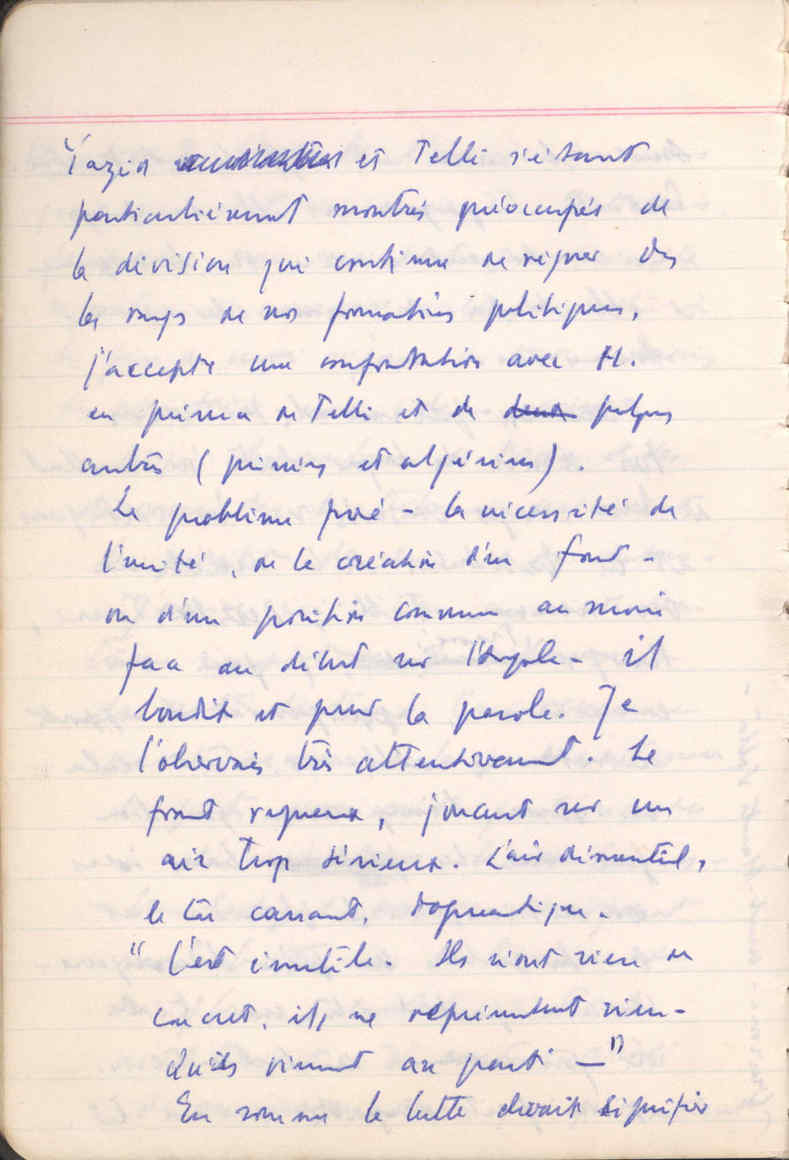 Yazid et Telli s'étant
particulièrement montrés préoccupés de
la division qui continue de régner ds
les rangs de nos formations politiques,
j'accepte une confrontation avec H.
en présence de Telli et de quelques
autres (guinéens et algériens).
Le problème posé - la nécessité de
l'unité, de la création d'un front -
ou d'une position commune au moins
face au début sur l'Angola - il
bondit et prend la parole. Je
l'observais très attentivement. Le
front rugueux, jouant sur un
air trop sérieux. L'air démentiel,
le ton cassant, dogmatique.
"C'est inutile. Ils n'ont rien de
concret, ils ne représentent rien -
Qu'ils viennent au parti -"
En somme la lutte devait signifier